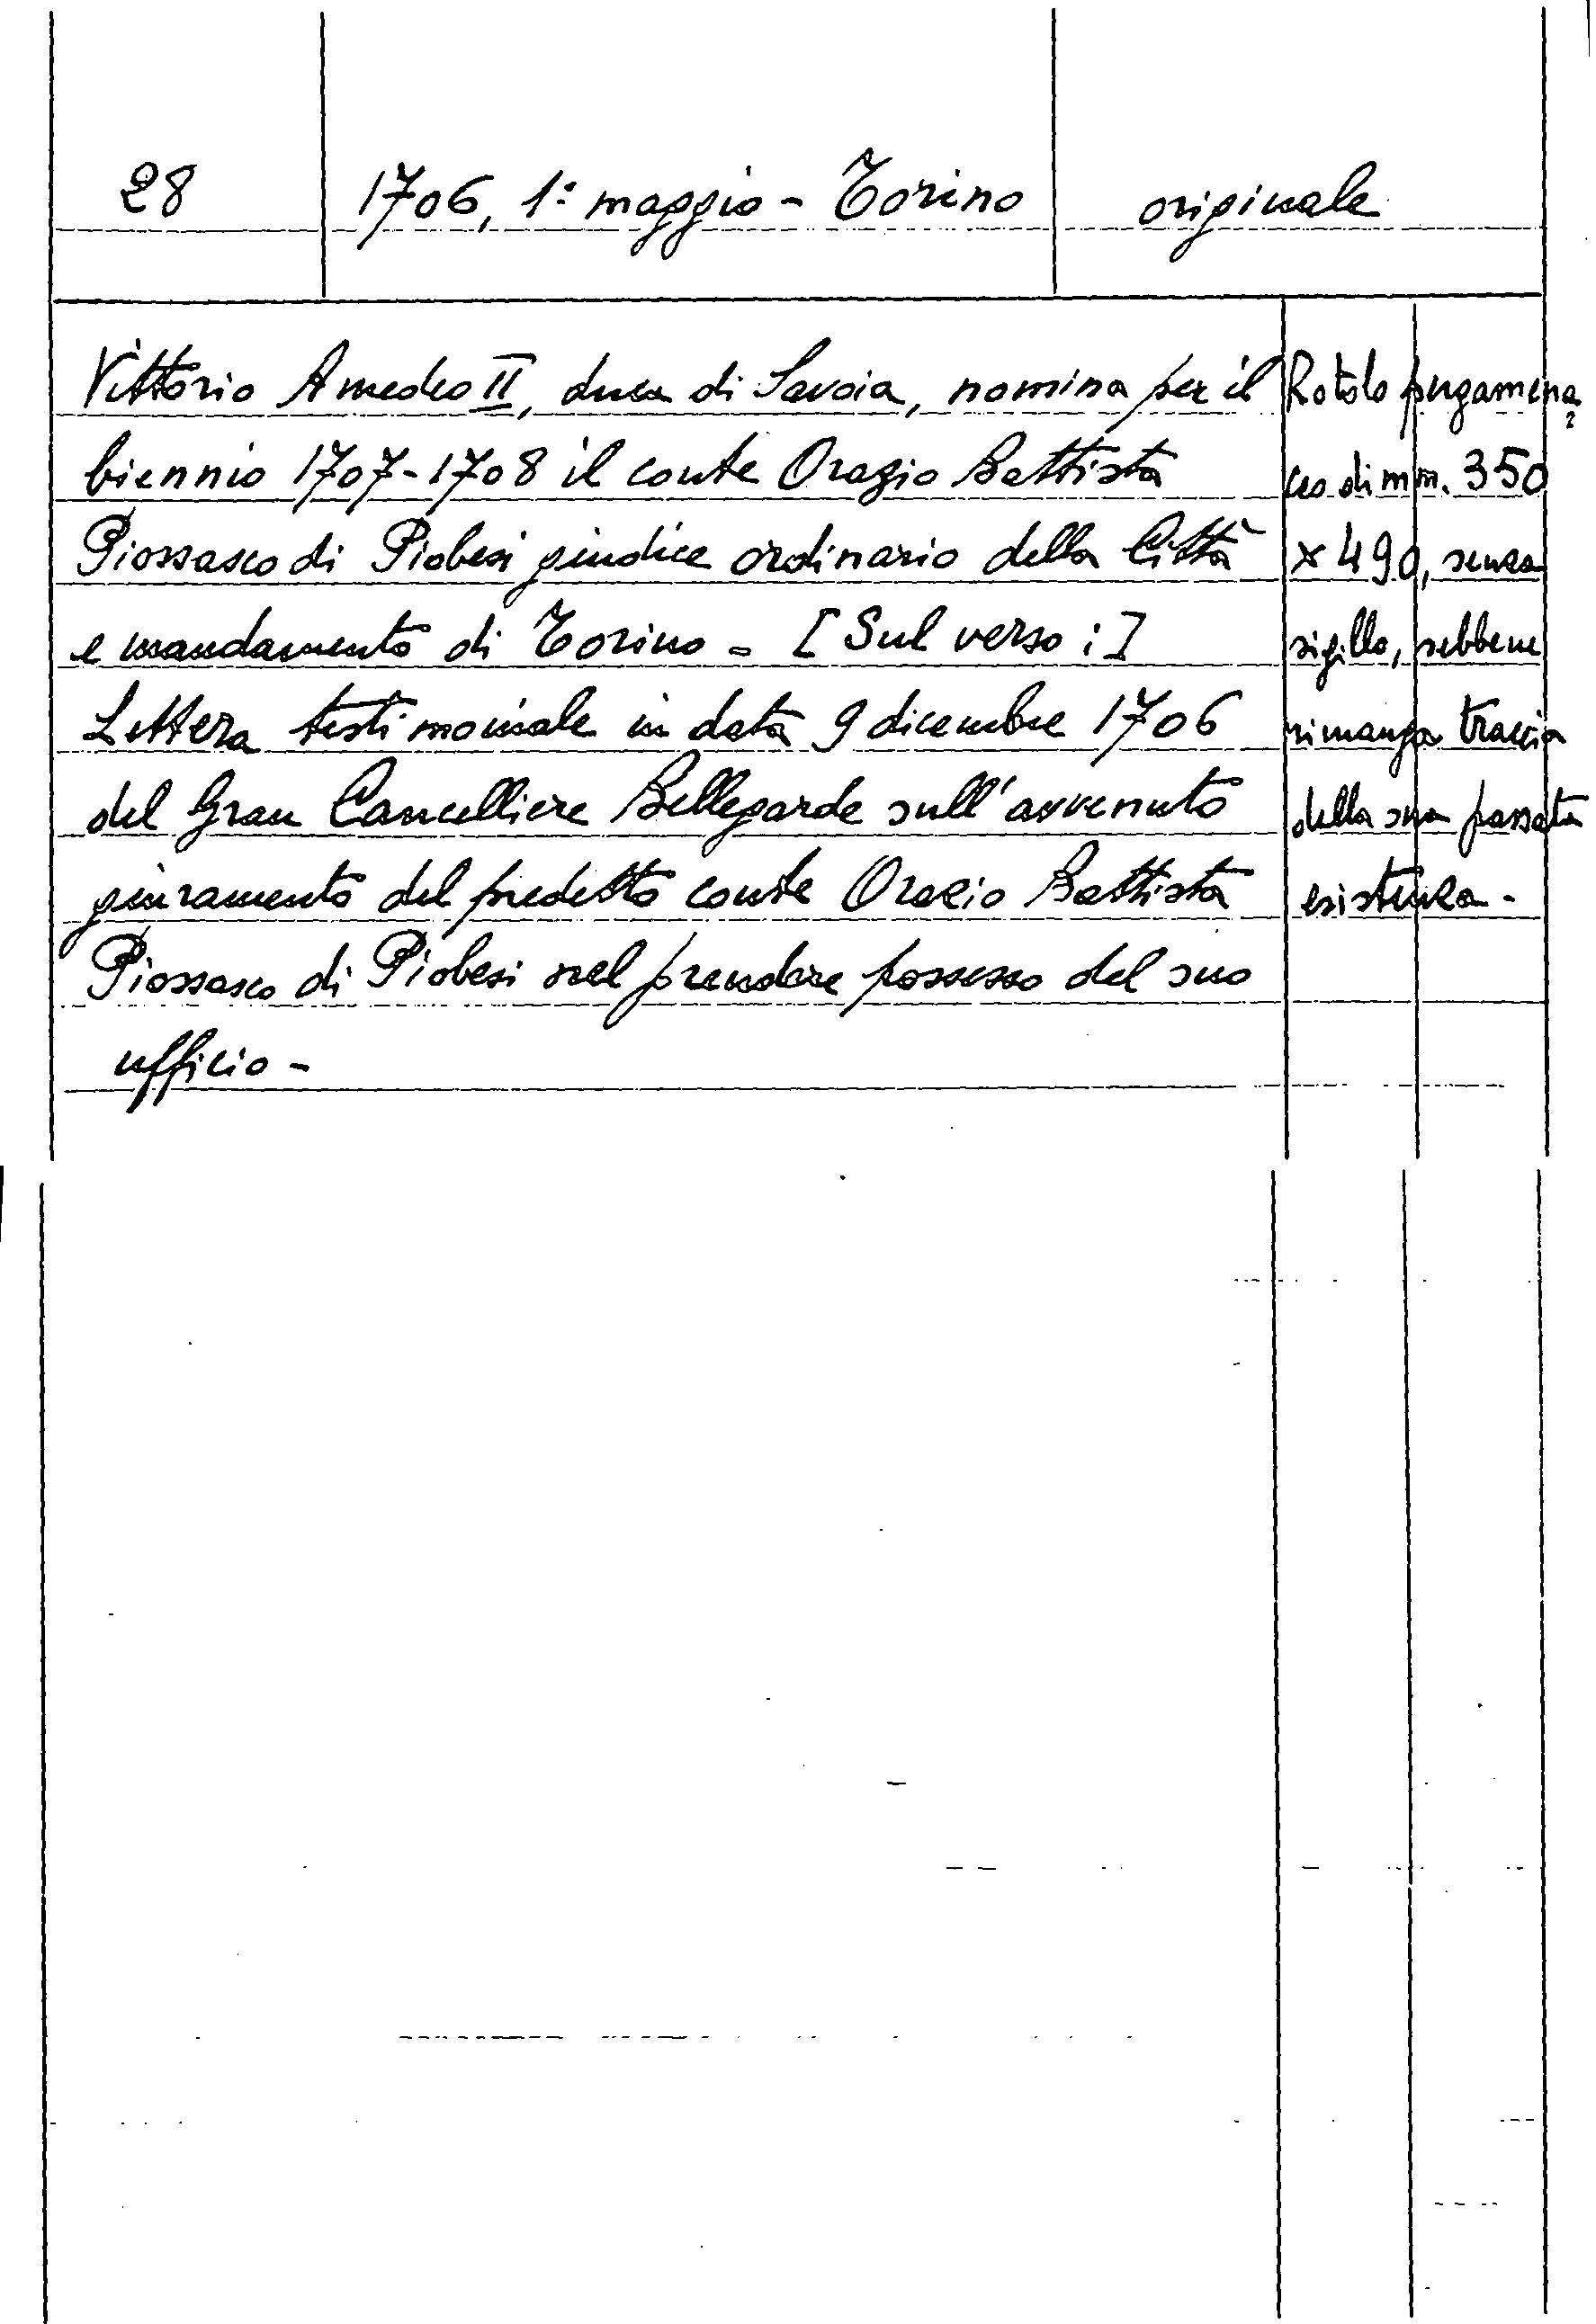 28
1706, 1° maggio - Torino
originale
Vittorio Amedeo II, duca di Savoia, nomina per il
biennio 1707-1708 il conte Orazio Battista
Piossasco di Piobesi giudice ordinario della Città
e mandamento di Torino - [Sul verso:]
Lettera testimoniale in data 9 dicembre 1706
del Gran Cancelliere Bellegarde sull'avvenuto
giuramento del predetto conte Orazio Battista
Piossasco di Piobesi nel prendere possesso del suo
ufficio -
Rotolo pergamena
ceo di mm. 350
x 490, senza
sigillo, sebbene
rimanga traccia
della sua passata
esistenza -